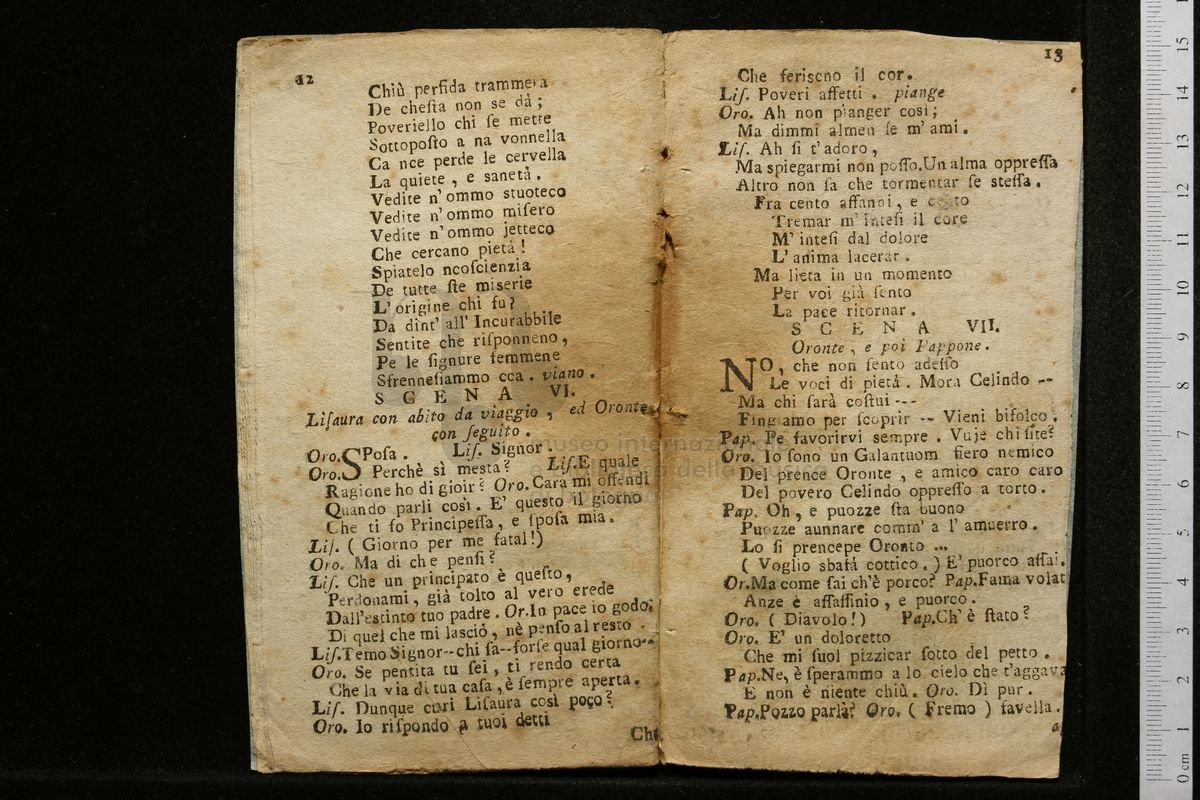 12
Chiù perfida trammera
De chesta non se dà ;
Poveriello chi se mette
Sottoposto a na vonnella
Ca nce perde le cervella
La quiete , e sanetà .
Vedite n' ommo stuoteco
Vedite n' ommo misero
Vedite n' ommo jetteco
Che cercano pietà !
Spiatelo ncoscienzia
De tutte ste miserie
L' origine chi fu ?
Da dint' all' Incurabbile
Sentite che risponneno ,
Pe le signure femmene
Sfrennesiammo cca . viano .
SCENA VI.
Lisaura con abito da viaggio , ed Oronte
con seguito .
Oro. SPosa . Lis. Signor .
Oro. Perchè sì mesta ? Lis. E quale
Ragione ho di gioir ? Oro. Cara mi offendi
Quando parli così . E' questo il giorno
Che ti fo Principessa , e sposa mia .
Lis. ( Giorno per me fatal ! )
Oro. Ma di che pensi ?
Lis. Che un principato è questo ,
Perdonami , già tolto al vero erede
Dall' estinto tuo padre . Or. In pace io godo
Di quel che mi lasciò , nè penso al resto .
Lis. Temo Signor -- chi sa -- forse qual giorno --
Oro. Se pentita tu sei , ti rendo certa
Che la via di tua casa , è sempre aperta .
Lis. Dunque curi Lisaura così poco ?
Oro. Io rispondo a tuoi detti
Che
13
Che feriscno il cor .
Lis. Poveri affetti . piange
Oro. Ah non pianger così ;
Ma dimmi almen se m' ami .
Lis. Ah sì t' adoro ,
Ma spiegarmi non posso . Un alma oppressa
Altro non sa che tormentar se stessa .
Fra cento affanni , e cento
Tremar m' intesi il core
M' intesi dal dolore
L' anima lacerar .
Ma lieta in un momento
Per voi già sento
La pace ritornar .
SCENA VII.
Oronte , e poi Pappone .
NO , che non sento adesso
Le voci di pietà . Mora Celindo --
Ma chi sarà costui ---
Fingiamo per scoprir -- Vieni bifolco .
Pap. Pe favorirvi sempre . Vuje chi site ?
Oro. Io sono un Galantuom fiero nemico
Del prence Oronte , e amico caro caro
Del povero Celindo oppresso a torto .
Pap. Oh , e puozze sta buono
Puozze aunnare comm' a l' amuerro .
Lo si prencepe Oronto ...
( Voglio sbafà cottico . ) E' puorco assai .
Or. Ma come sai ch'è porco ? Pap. Fama volat
Anze è assassinio , e puorco .
Oro. ( Diavolo ! ) Pap. Ch' è stato ?
Oro. E' un doloretto
Che mi suol pizzicar sotto del petto .
Pap. Ne, è sperammo a lo cielo che t'aggava
E non è niente chiù . Oro. Dì pur .
Pap. Pozzo parlà ? Oro. ( Fremo ) favella .